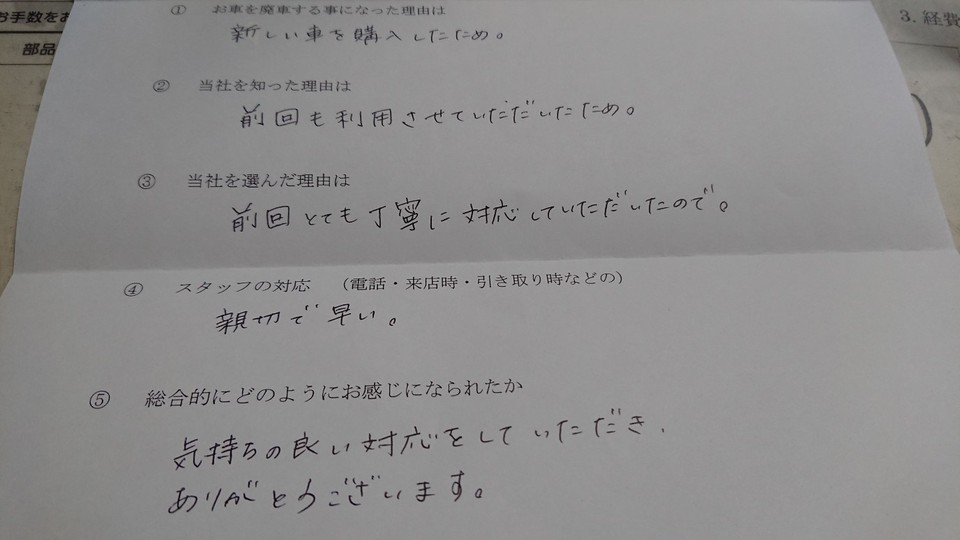 お手数をお
部品
3. 経費
① お車を廃車する事になった理由は
新しい車を購入したため。
② 当社を知った理由は
前回も利用させていただいたため。
③ 当社を選んだ理由は
前回とても丁寧に対応していただいたので。
④ スタッフの対応 （電話・来店時・引き取り時などの）
親切で早い。
⑤ 総合的にどのようにお感じになられたか
気持ちの良い対応をしていただき、
ありがとうございます。